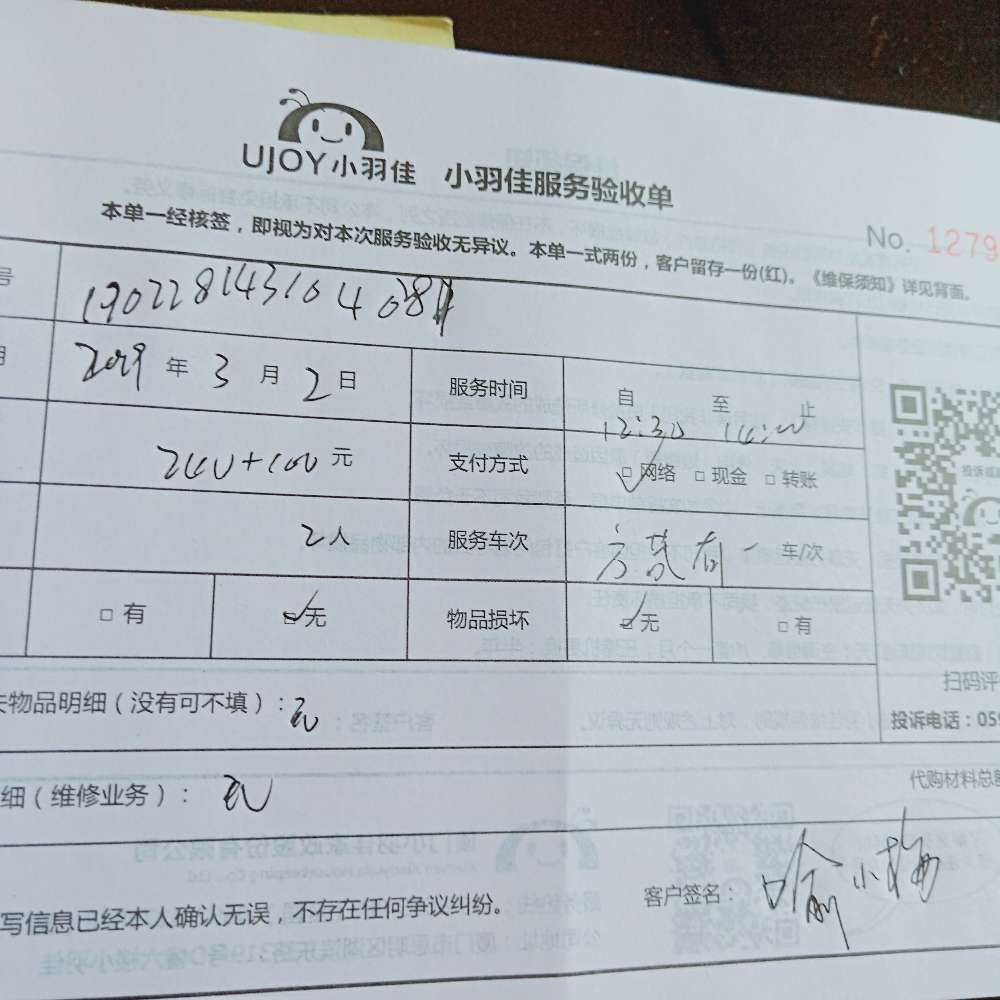 UJOY小羽佳 小羽佳服务验收单
No. 1279
本单一经核签，即视为对本次服务验收无异议。本单一式两份，客户留存一份(红)。《维保须知》详见背面。
号 190228143104081
2019 年 3 月 2 日 服务时间 自 至 止
12:30 14:00
200+100 元 支付方式 □网络 □现金 □转账
2人 服务车次 车/次
□有 □无 物品损坏 □无 □有
投诉或
扫码评
失物品明细（没有可不填）：无
投诉电话：059
代购材料总额
细（维修业务）：无
客户签名： 小梅
写信息已经本人确认无误，不存在任何争议纠纷。